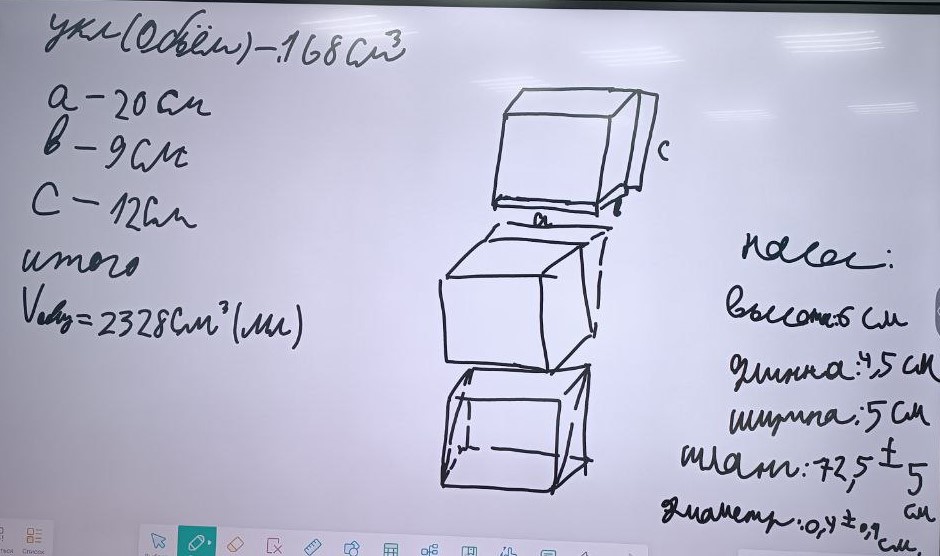 укл(Объём)-168см³
a-20 см
b-9 см
C-12см
итого
Vобщ=2328см³(мл)
C
a
насос:
высота:6 см
длинна:4,5 см
ширина:5 см
шланг:72,5±5 см
диаметр:0,4±0,1 см.
Список